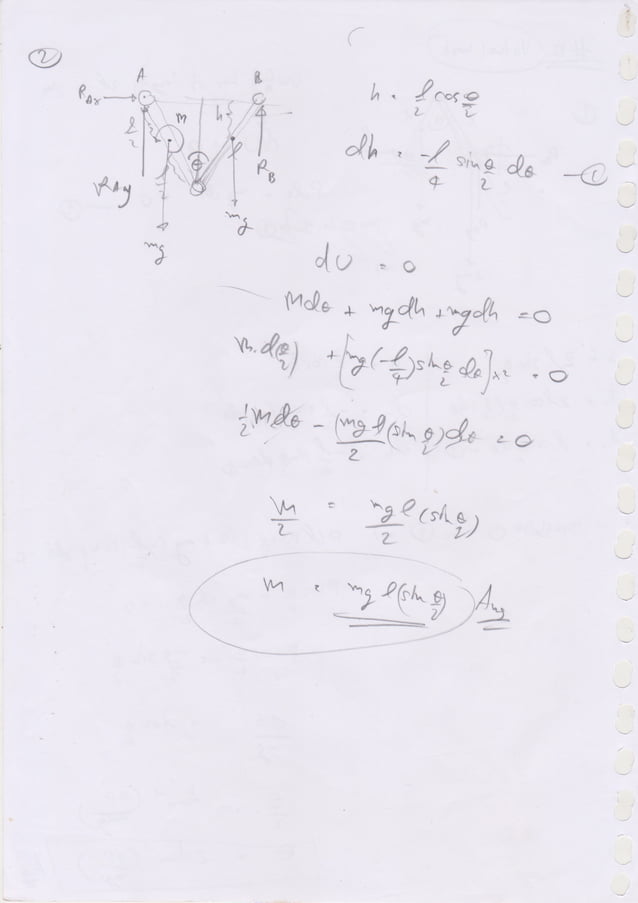 2
A B
R_Ax M h
l/2 θ l
R_Ay R_B
mg mg
h = l/2 cos θ/2
dh = -l/4 sin θ/2 dθ — ①
dU = 0
Mdθ + mgdh + mgdh = 0
M. d(θ/2) + [mg(-l/4) sin θ/2 dθ] x2 = 0
1/2 M dθ - mgl/2 (sin θ/2) dθ = 0
M/2 = mgl/2 (sin θ/2)
M = mgl (sin θ/2) Ans